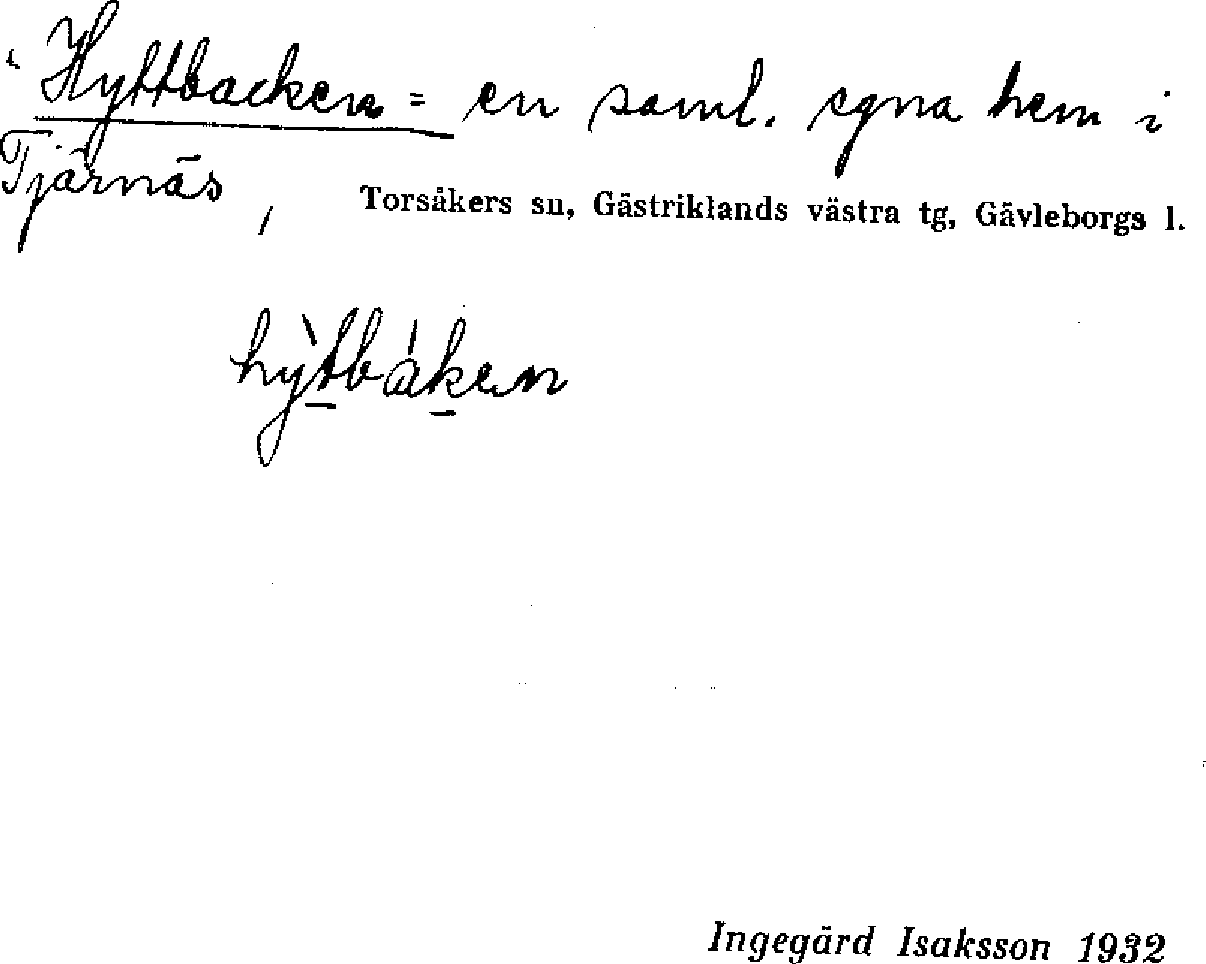 Hyttbacken = en saml. egna hem i
Tjärnäs, Torsåkers sn, Gästriklands västra tg, Gävleborgs l.
hỳt̠bák̠en
Ingegärd Isaksson 1932